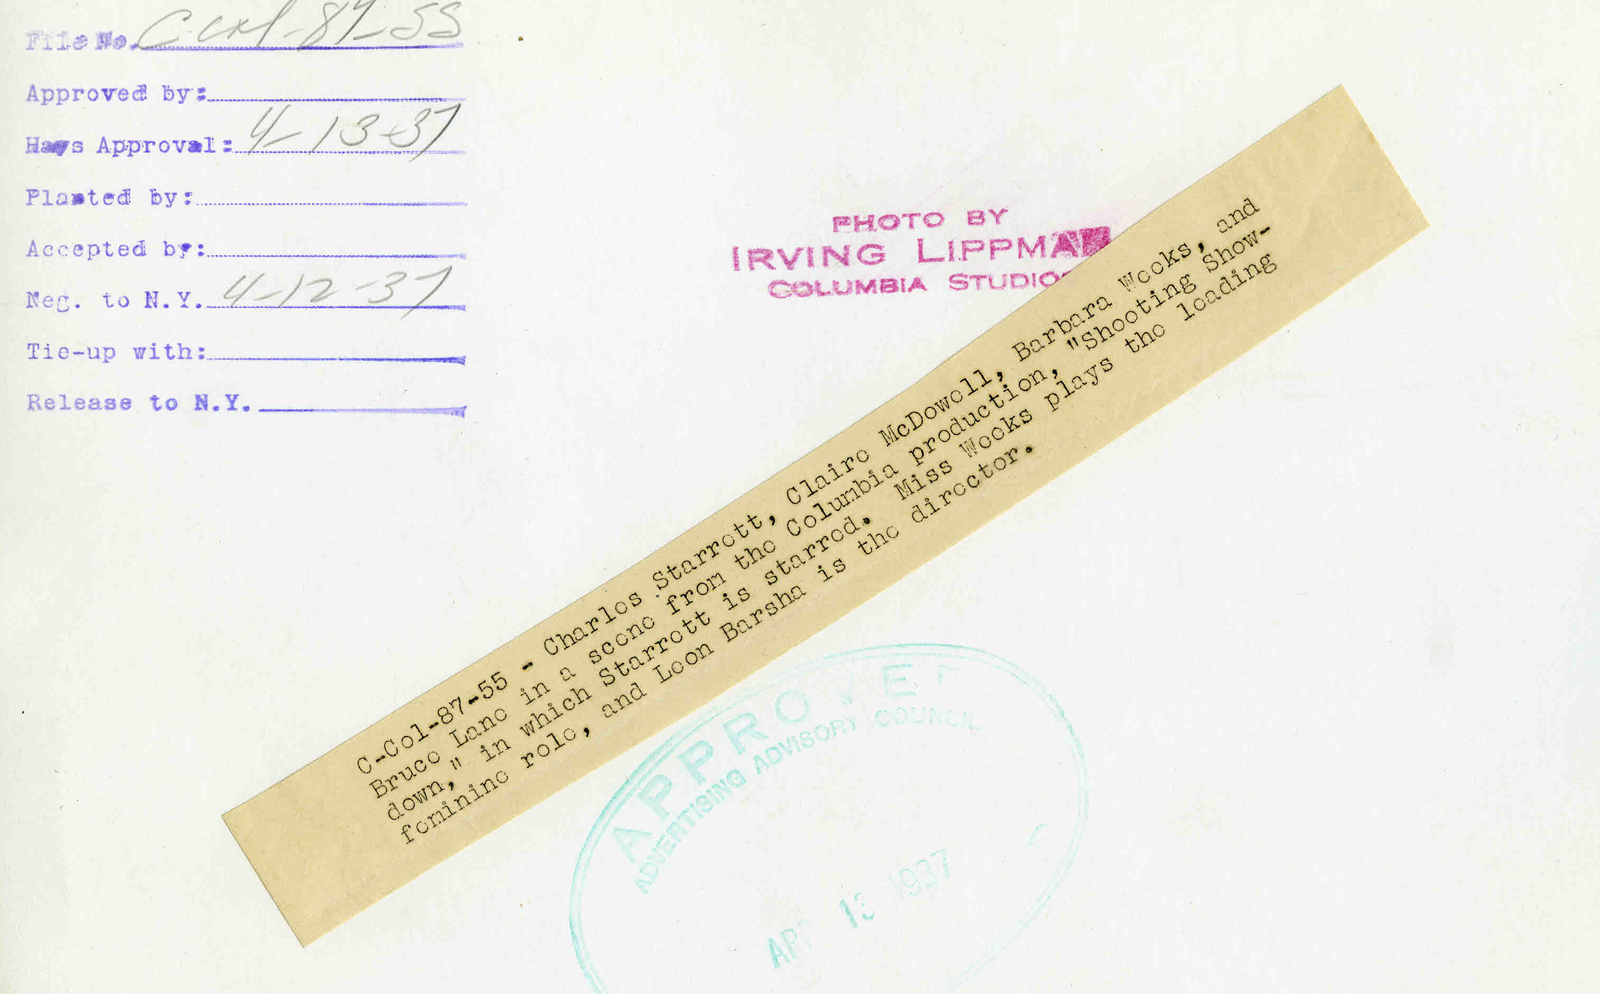 File No. C Col-87-55
Approved by:
Hays Approval: 4-13-37
Planted by:
Accepted by:
Neg. to N.Y. 4-12-37
Tie-up with:
Release to N.Y.
PHOTO BY
IRVING LIPPMA
COLUMBIA STUDIO
C-Col-87-55 - Charles Starrett, Claire McDowell, Barbara Weeks, and
Bruce Lane in a scene from the Columbia production, "Shooting Show-
down," in which Starrett is starred. Miss Weeks plays the leading
feminine role, and Leon Barsha is the director.
APPROVED
ADVERTISING ADVISORY COUNCIL
APR 13 1937